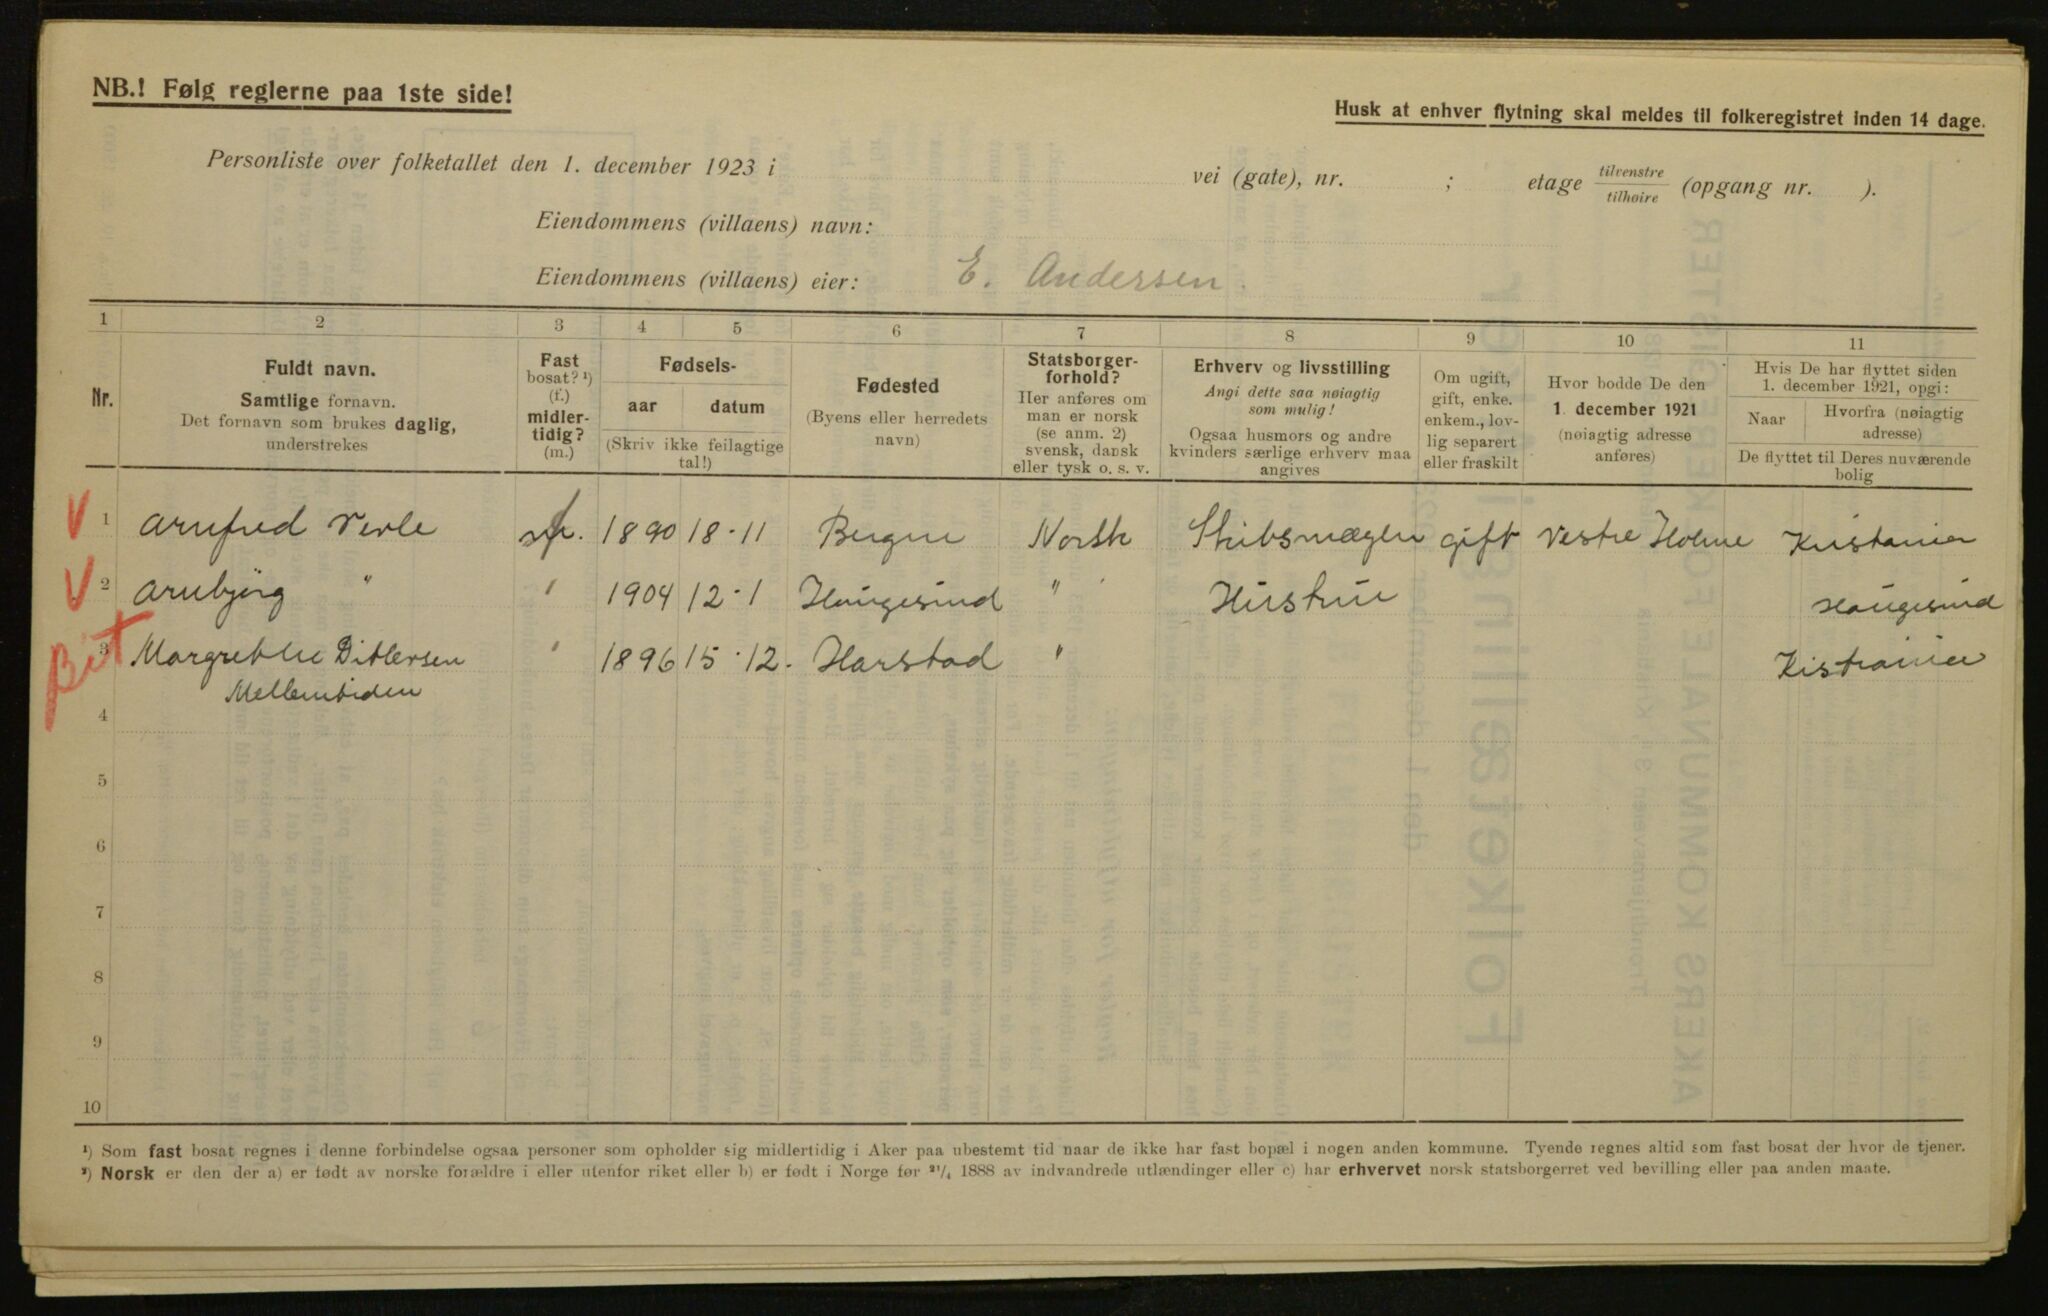 NB.! Følg reglerne paa 1ste side!
Husk at enhver flytning skal meldes til folkeregistret inden 14 dage.
Personliste over folketallet den 1. december 1923 i vei (gate), nr. ; etage tilvenstre tilhøire (opgang nr. ).
Eiendommens (villaens) navn:
Eiendommens (villaens) eier: E. Andersen.
1 2 3 4 5 6 7 8 9 10 11
Nr.
Fuldt navn.
Samtlige fornavn.
Det fornavn som brukes daglig,
understrekes
Fast
bosat? ¹)
(f.)
midler-
tidig?
(m.)
Fødsels-
aar datum
(Skriv ikke feilagtige
tal!)
Fødested
(Byens eller herredets
navn)
Statsborger-
forhold?
Her anføres om
man er norsk
(se anm. 2)
svensk, dansk
eller tysk o. s. v.
Erhverv og livsstilling
Angi dette saa nøiagtig
som mulig!
Ogsaa husmors og andre
kvinders særlige erhverv maa
angives
Om ugift,
gift, enke.
enkem., lov-
lig separert
eller fraskilt
Hvor bodde De den
1. december 1921
(nøiagtig adresse
anføres)
Hvis De har flyttet siden
1. december 1921, opgi:
Naar
Hvorfra (nøiagtig
adresse)
De flyttet til Deres nuværende
bolig
V 1 Arnfred Verle 1890 18-11 Bergen Norsk Skibsmægler gift Vestre Holme Kristania
V 2 Arnbjörg " " 1904 12-1 Haugesund " Hustru Haugesund
Bit 3 Margrethe Ditlefsen " 1896 15-12. Harstad " Kistrania
Mellemtiden
4
5
6
7
8
9
10
¹) Som fast bosat regnes i denne forbindelse ogsaa personer som opholder sig midlertidig i Aker paa ubestemt tid naar de ikke har fast bopæl i nogen anden kommune. Tyende regnes altid som fast bosat der hvor de tjener.
²) Norsk er den der a) er født av norske forældre i eller utenfor riket eller b) er født i Norge før ²¹/₄ 1888 av indvandrede utlændinger eller c) har erhvervet norsk statsborgerret ved bevilling eller paa anden maate.